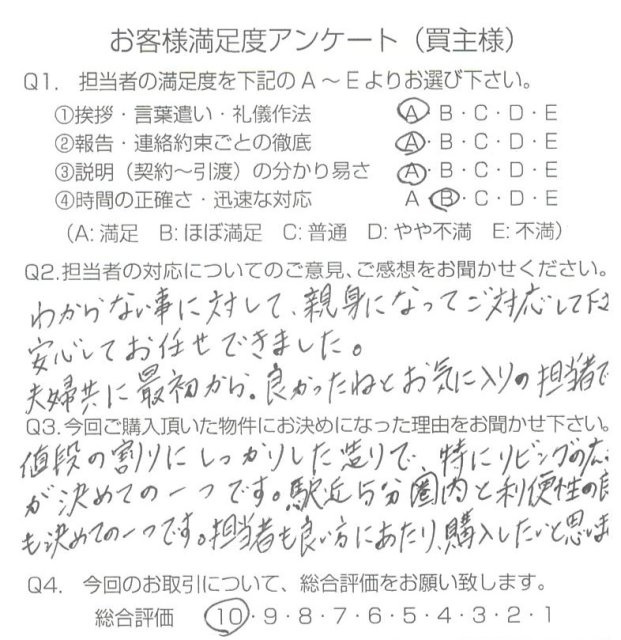 お客様満足度アンケート（買主様）
Q1. 担当者の満足度を下記のA～Eよりお選び下さい。
①挨拶・言葉遣い・礼儀作法 A・B・C・D・E
②報告・連絡約束ごとの徹底 A・B・C・D・E
③説明（契約～引渡）の分かり易さ A・B・C・D・E
④時間の正確さ・迅速な対応 A・B・C・D・E
（A:満足 B:ほぼ満足 C:普通 D:やや不満 E:不満）
Q2.担当者の対応についてのご意見、ご感想をお聞かせください。
わからない事に対して、親身になってご対応して下さ
安心してお任せできました。
夫婦共に最初から。良かったねとお気に入りの担当者で
Q3.今回ご購入頂いた物件にお決めになった理由をお聞かせ下さい。
値段の割りにしっかりした造りで、特にリビングの広
が決めての一つです。駅近5分圏内と利便性の良
も決めての一つです。担当者も良い方にあたり、購入したいと思いま
Q4. 今回のお取引について、総合評価をお願い致します。
総合評価 10・9・8・7・6・5・4・3・2・1